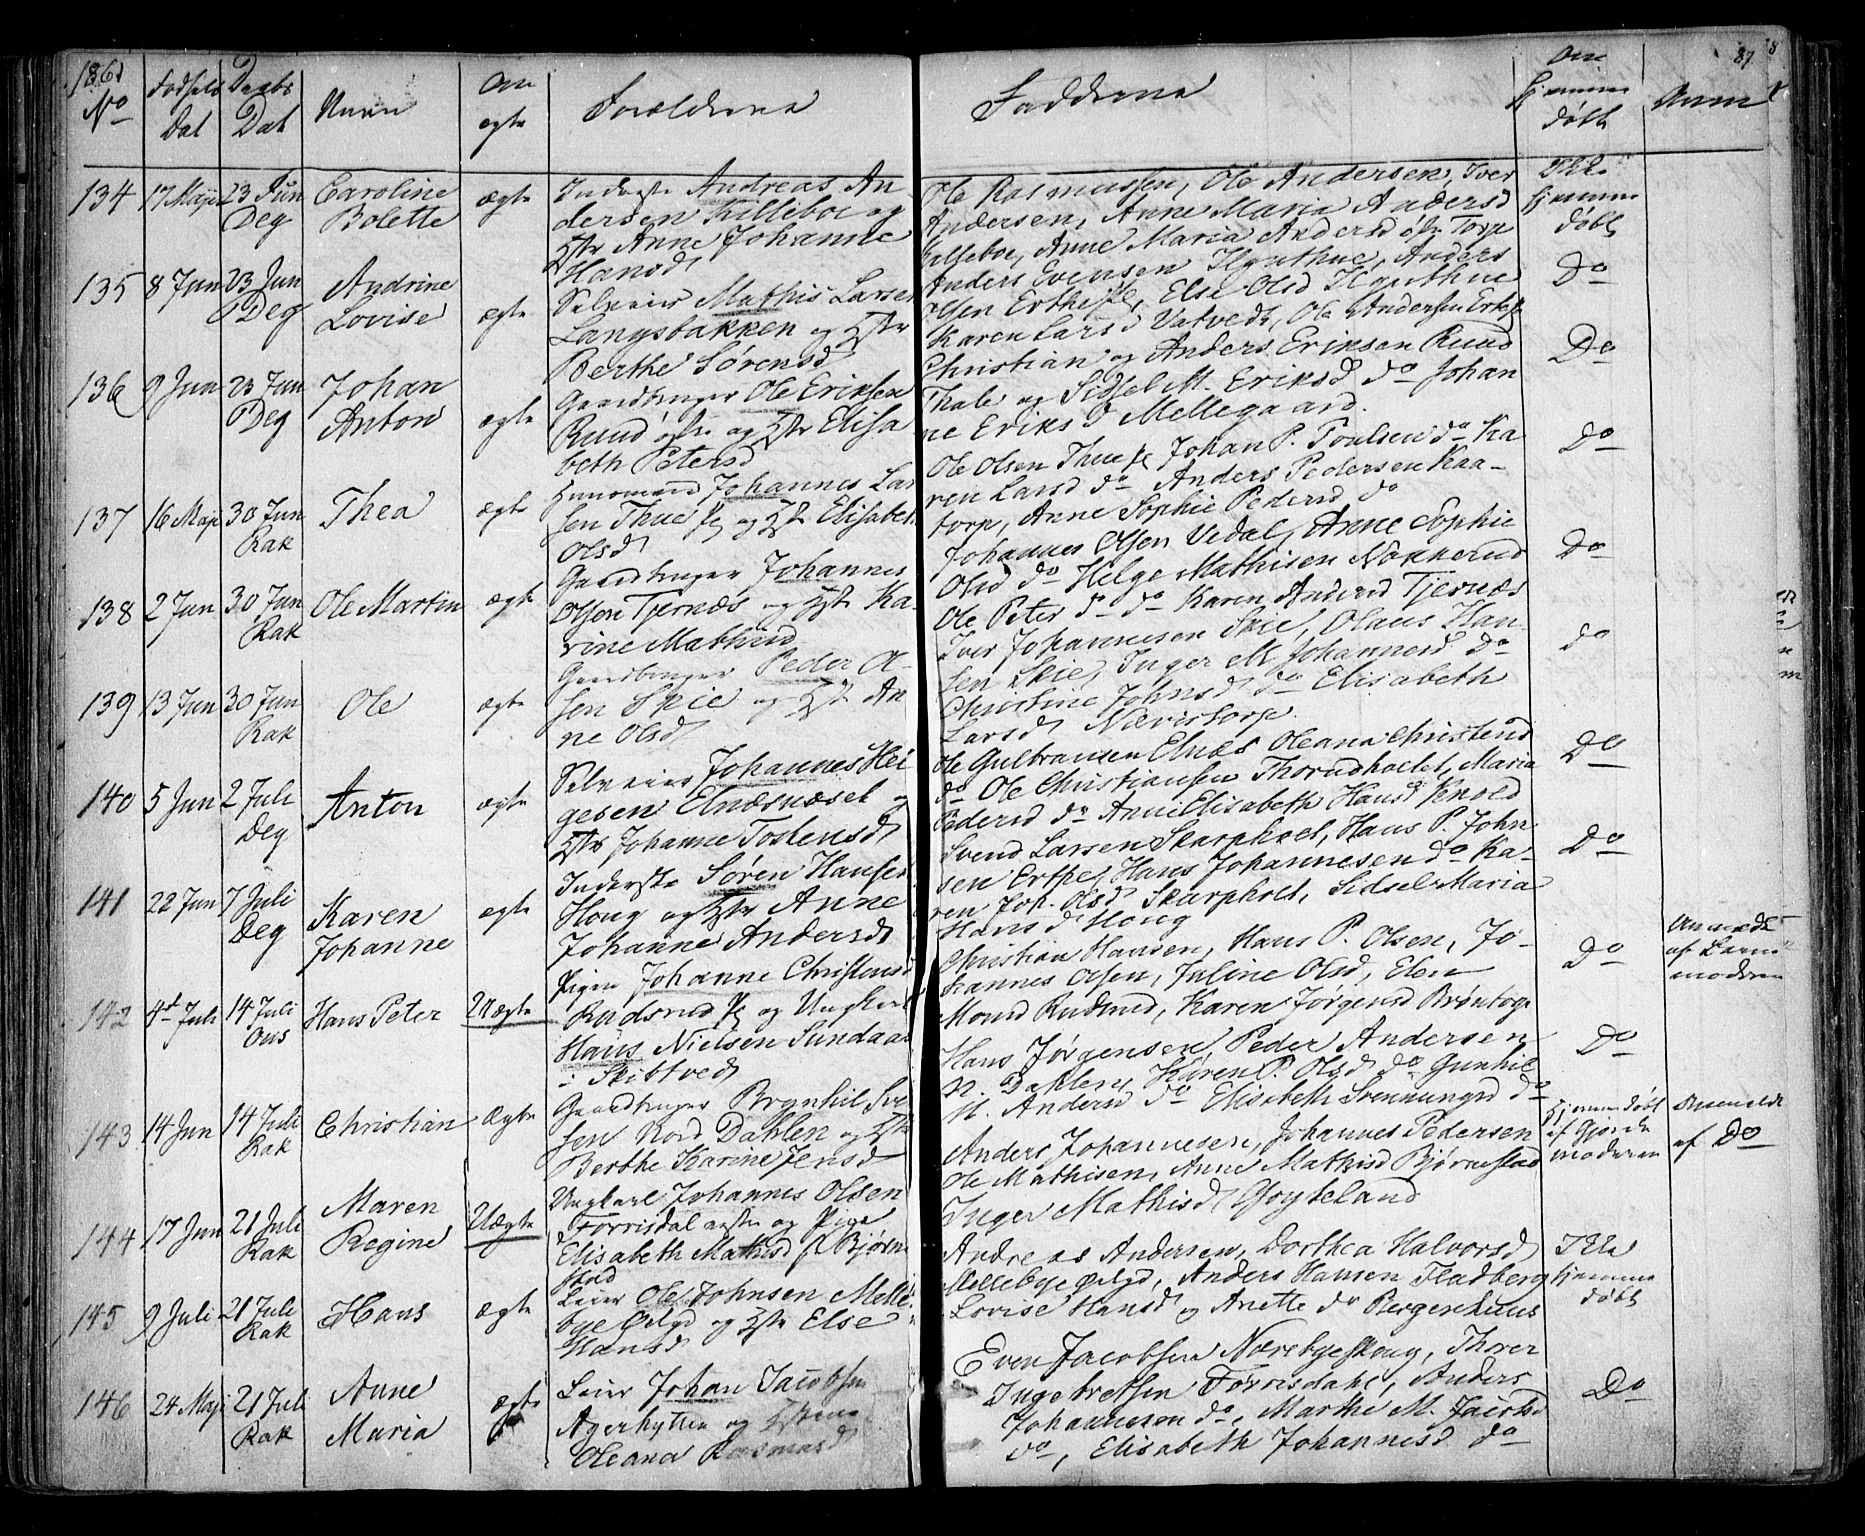 1861 87
No Fødsels Dat Daabs Dat Navn Om ægte Forældrene Faddrene Om hjemme døbt Anm
134 17 Maji 23 Jun Deg Caroline Bolette ægte
Inderste Andreas An
dersen Killeboe og
Hstr Anne Johanne
Hansd
Ole Rasmussen, Ole Andersen, Iver
Andersen, Anne Maria Andersd
Killeboe, Anne Maria Andersd Torp
Ikke hjemme døbt
135 8 Jun 23 Jun Deg Andrine Lovise ægte
Selveier Mathis Larsen
Langsbakken og Hstr
Berthe Sørensd
Anders Evensen Anders
Olsen Else Olsd
Karen Larsd Vatvedt, Ole Andersen
Do
136 9 Jun 23 Jun Deg Johan Anton ægte
Gaardbruger Ole Eriksen
Ruud og Hstr Elisa
beth Petersd
Christian og Anders Eriksen Ruud
Thale og Sidsel M. Eriksd do Johan
ne Eriksd Mellegaard.
Do
137 16 Maji 30 Jun Rak Thea ægte
Huusmand Johannes Lar
sen Thue og Hstr Elisabeth
Olsd
Ole Olsen Thue Johan P. Poulsen do Ka
ren Larsd do Anders Pedersen Kaa-
torp, Anne Sophie Pedersd do
Do
138 2 Jun 30 Jun Rak Ole Martin ægte
Gaardbruger Johannes
Olsen Tjernæs og Hstr Ka-
rine Mathisd
Johannes Olsen Vedal, Anne Sophie
Olsd do Helge Mathisen Nokkerud
Ole Peter do Karen Andersd Tjernæs
Do
139 13 Jun 30 Jun Rak Ole ægte
Gaardbruger Peder O-
sen Skie og Hstr An
ne Olsd
Iver Johannesen Skie, Olaus Han
sen Skie, Inger M Johannesd Do
Christine Johnsd do Elisabeth
Larsd
do
140 5 Jun 2 Juli Deg Anton ægte
Selveier Johannes Hel
gesen Elnæsnæset og
Hstr Johanne Tostensd
Ole Gulbransen Elnæs Oleana Christensd
do Ole Christiansen Thorudholtet, Maria
Pedersd do Anne Elisabeth Hansd
Do
141 22 Jun 7 Juli Deg Karen Johanne ægte
Inderste Søren Hansen
Houg og Hstr Anne
Johanne Andersd
Svend Larsen Skarpholt, Hans P. John
sen Hans Johannesen do Ka-
ren Joh. Olsd Skarpholt, Sidsel Maria
Hansd Houg
Do
142 4d Juli 14 Juli Ous Hans Peter Uægte
Pigen Johanne Christensd
Rudsrud og Ungkarl
Hans Nielsen Sundaas
i Skibtvedt
Christian Hansen, Hans P. Olsen, Jo-
hannes Olsen, Juline Olsd, Elen
Karen Jørgensd
Do
Anmeldt af Barnemoderen
143 14 Jun 14 Juli Rak Christian Ægte
Gaardbruger Brynhil Sve
sen Nord Dahlen og Hstr
Berthe Karine Jensd
Hans Jørgensen Peder Andersen
N. Dahlen, Karen P. Olsd do Gunhil
M. Andersd do Elisabeth Svenningsd do
Do
144 17 Jun 21 Juli Rak Maren Regine Uægte
Ungkarl Johannes Olsen
Førrisdal og Pige
Elisabeth Mathisd Bjørne
stad
Anders Johannesen, Johannes Pedersen
Ole Mathisen, Anne Mathisd Bjørnestad
Inger Mathisd
Hjemmedøbt af Gjordemoderen
Anmeldt af Do
145 9 Juli 21 Juli Rak Hans ægte
Leier Ole Johnsen Melle-
bye og Hstr Else
Hansd
Andreas Andersen, Dorthea Halvorsd
Mellebye Anders Hansen Fladberg
Lovise Hansd og Anette do Bergerhuus
Ikke hjemme døbt
146 24 Maji 21 Juli Rak Anne Maria ægte
Leier Johan Jacobsen
Agerhytten og Hstru
Oleana Rasmusd
Even Jacobsen Thorer
Ingebretsen Førrisdahl, Anders
Johannesen do, Marthe M. Jacobsd
do, Elisabeth Johannesd do
Do